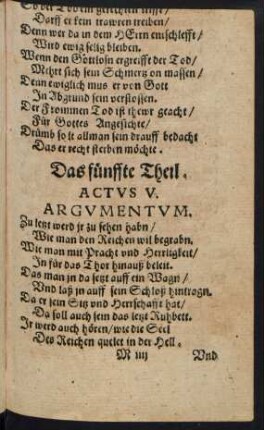 So der Tod ein gerechten treffe/
Dorff er kein trawren treiben/
Denn wer da in dem HErrn entschlefft/
Wird ewig selig bleiben.
Wenn den Gottlosn ergreifft der Tod/
Mehrt sich sein Schmertz on massen/
Denn ewiglich mus er von Gott
In Abgrund sein verstossen.
Der Frommen Tod ist thewr geacht/
Für Gottes Angesichte/
Drümb solt allman sein drauff bedacht
Das er recht sterben möchte.
Das fünffte Theil.
ACTVS V.
ARGVMENTVM.
Zu letzt werd jr zu sehen habn/
Wie man den Reichen wil begrabn.
Wie man mit Pracht vnd Herrligkeit/
In für das Thor hinauß beleit.
Das man jn da setzt auff ein Wagn/
Vnd laß jn auff sein Schloß hintragn.
Da er sein Sitz vnd Herrschafft hat/
Da soll auch sein das letzt Ruhbett.
Ir werd auch hören/wie die Seel
Des Reichen quelet in der Hell.
M iiij
Vnd